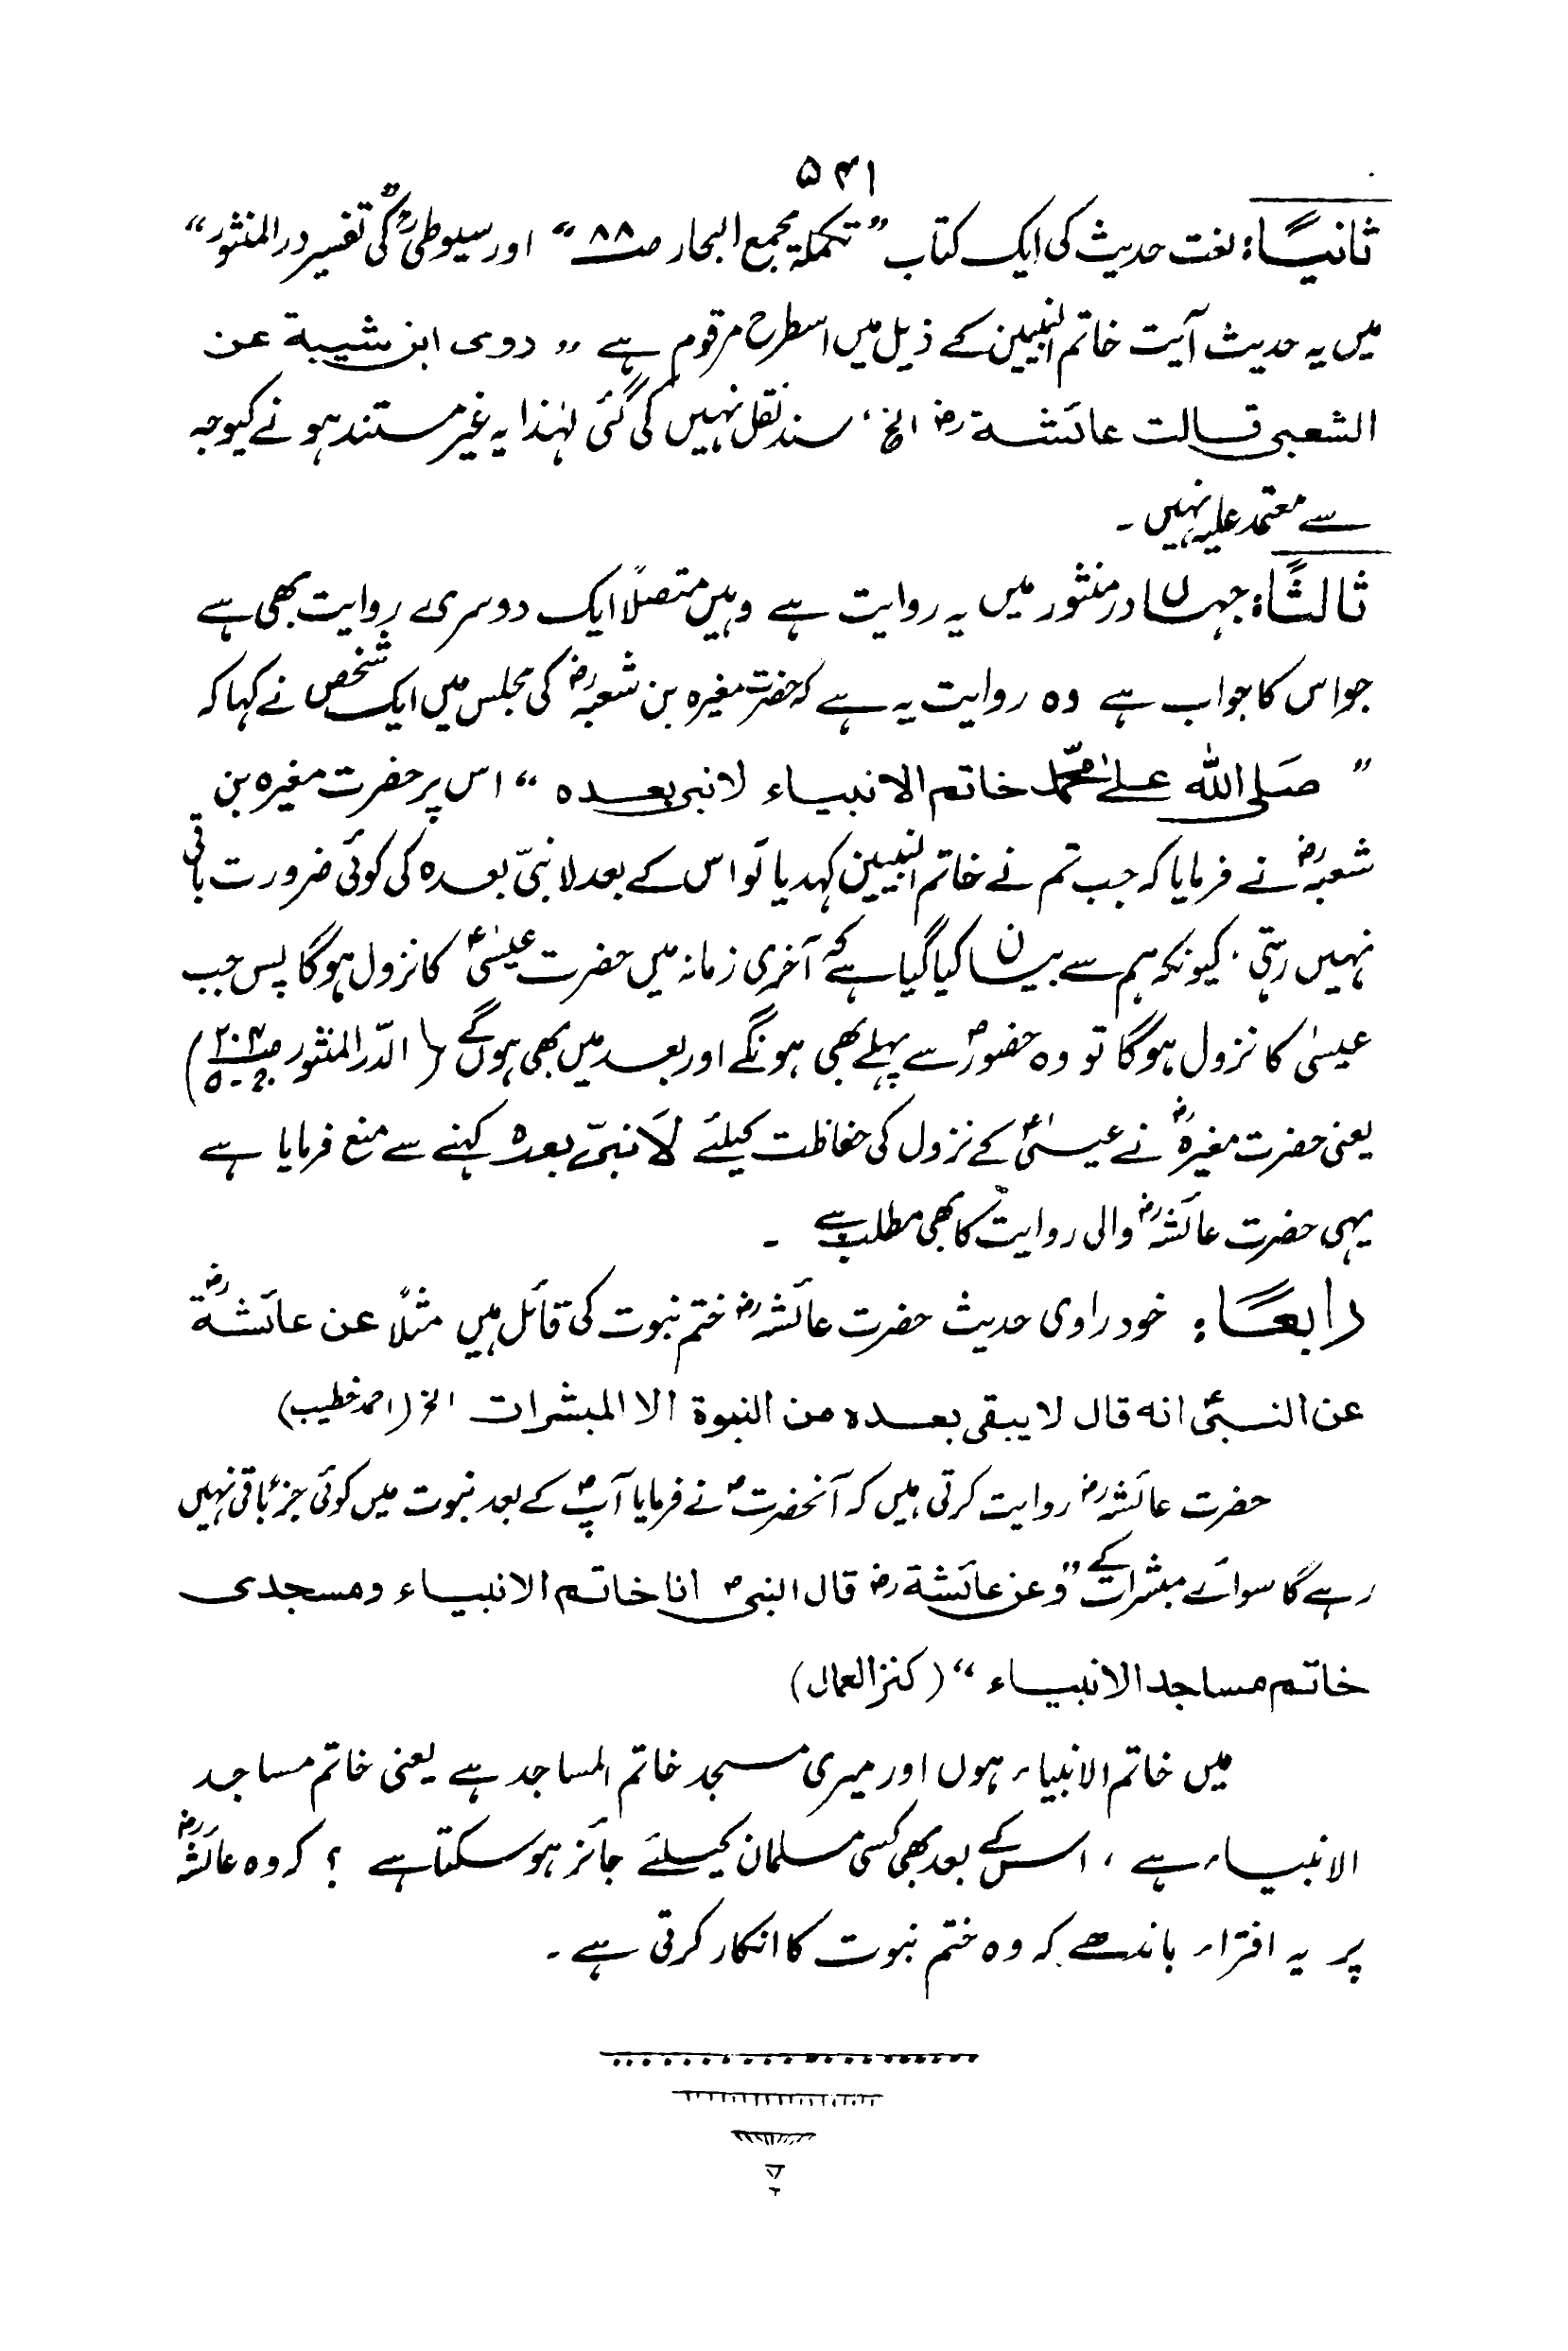 ۵۴۱
ثانیًا: لغت حدیث کی ایک کتاب ”تکملۃ مجمع البحار صـ ۸۸“ اور سیوطیؒ کی تفسیر در المنثور“
میں یہ حدیث آیت خاتم النبیین کے ذیل میں اسطرح مرقوم ہے ,, روی ابن شیبۃ عن
الشعبی قالت عائشۃ رض الخ، سند نقل نہیں کی گئی لہٰذا یہ غیر مستند ہونے کیوجہ
سے معتمد علیہ نہیں ۔
ثالثًا: جہاں در منثور میں یہ روایت ہے وہیں متصلًا ایک دوسری روایت بھی ہے
جو اس کا جواب ہے وہ روایت یہ ہے کہ حضرت مغیرہ بن شعبہ رض کی مجلس میں ایک شخص نے کہا کہ
” صَلی اللہ علیٰ محمّد خاتم الانبیاء لا نبی بعدہ “ اس پر حضرت مغیرہ بن
شعبہ رض نے فرمایا کہ جب تم نے خاتم النبیین کہدیا تو اس کے بعد لا نبیّ بعدہ کی کوئی ضرورت باقی
نہیں رہتی ۔ کیونکہ ہم سے بیان کیا گیا ہے کہ آخری زمانہ میں حضرت عیسیٰؑ کا نزول ہوگا پس جب
عیسیٰ کا نزول ہوگا تو وہ حضورؐ سے پہلے بھی ہونگے اور بعد میں بھی ہوں گے (الدّر المنثور صـ ۲۰۴ ج ۵)
یعنی حضرت مغیرہ رض نے عیسیٰؑ کے نزول کی حفاظت کیلئے لَا نبیّ بعدہ کہنے سے منع فرمایا ہے
یہی حضرت عائشہ رض والی روایت کا بھی مطلب ہے ۔
رابعًا: خود راوی حدیث حضرت عائشہ رض ختم نبوت کی قائل ہیں مثلًا عن عائشۃ رض
عن النبیؐ انہ قال لا یبقی بعدہ من النبوۃ الا المبشرات الخ (احمد خطیب)
حضرت عائشہ رض روایت کرتی ہیں کہ آنحضرتؐ نے فرمایا آپؐ کے بعد نبوت میں کوئی جزء باقی نہیں
رہے گا سوائے مبشرات کے ”وعن عائشۃ رض قال النبیؐ انا خاتم الانبیاء ومسجدی
خاتم مساجد الانبیاء “ (کنز العمال)
میں خاتم الانبیاء ہوں اور میری مسجد خاتم المساجد ہے یعنی خاتم مساجد
الانبیاء ہے ، اس کے بعد بھی کسی مسلمان کیلئے جائز ہو سکتا ہے ؟ کہ وہ عائشہ رض
پر یہ افتراء باندھے کہ وہ ختم نبوت کا انکار کرتی ہے ۔